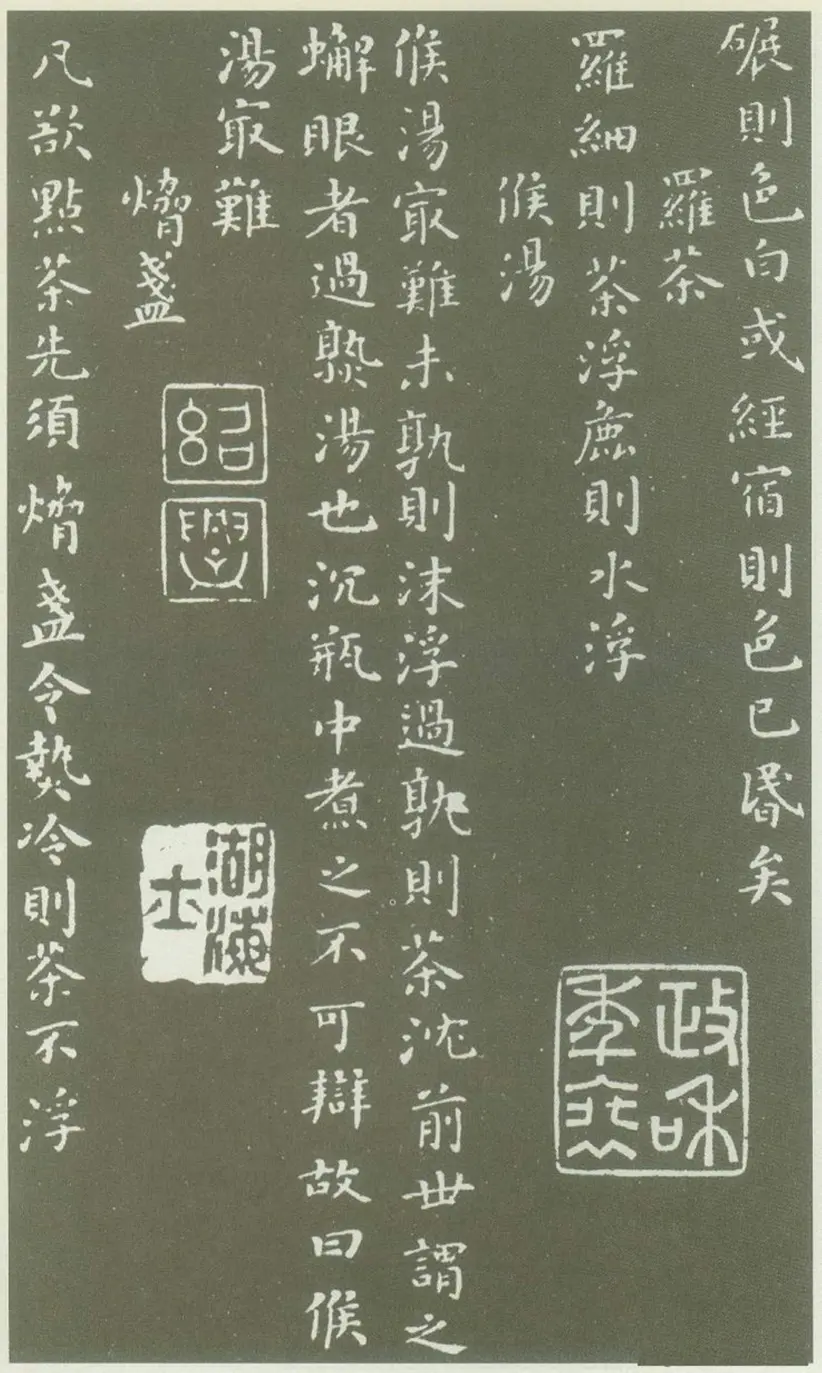 碾則色白或經宿則色已昬矣
羅茶
羅細則茶浮麁則水浮
候湯
候湯冣難未孰則沫浮過孰則茶沈前世謂之
蠏眼者過熟湯也沉瓶中煮之不可辯故曰候
湯冣難
熁盞
凡欲點茶先須熁盞令熱冷則茶不浮
紹
興
湖海
士
政和